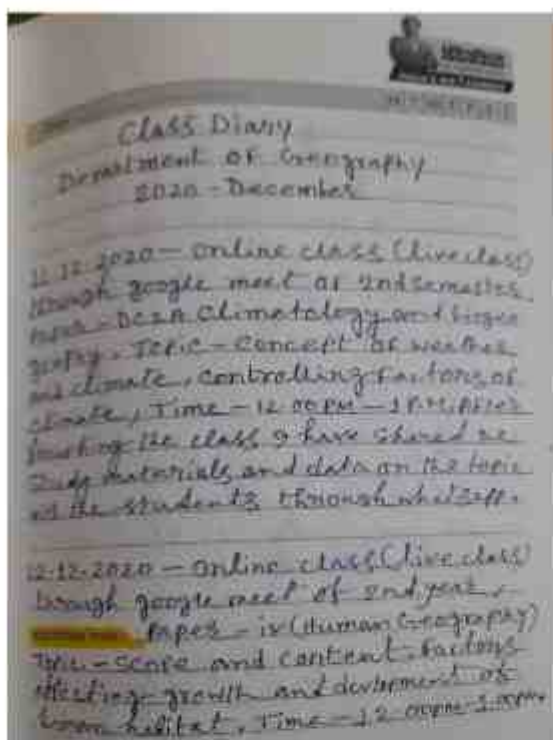 Class Diary
Department of Geography
2020 - December
12.2020 - online class (live class)
through google meet of 2nd semester,
Paper - DC2A Climetology and
Topic - Concept of weather
and climate, controlling Factors of
climate, Time - 12.00PM - 1P.M, After
the class I have shared
study materials and data on the topic
the students through whatsapp.
12-12-2020 - online class (live class)
through google meet of 2nd year,
Paper - iv (Human Geography)
Topic - Scope and content, Factors
growth and of
habitat, Time - 12.00pm - 1.00pm.